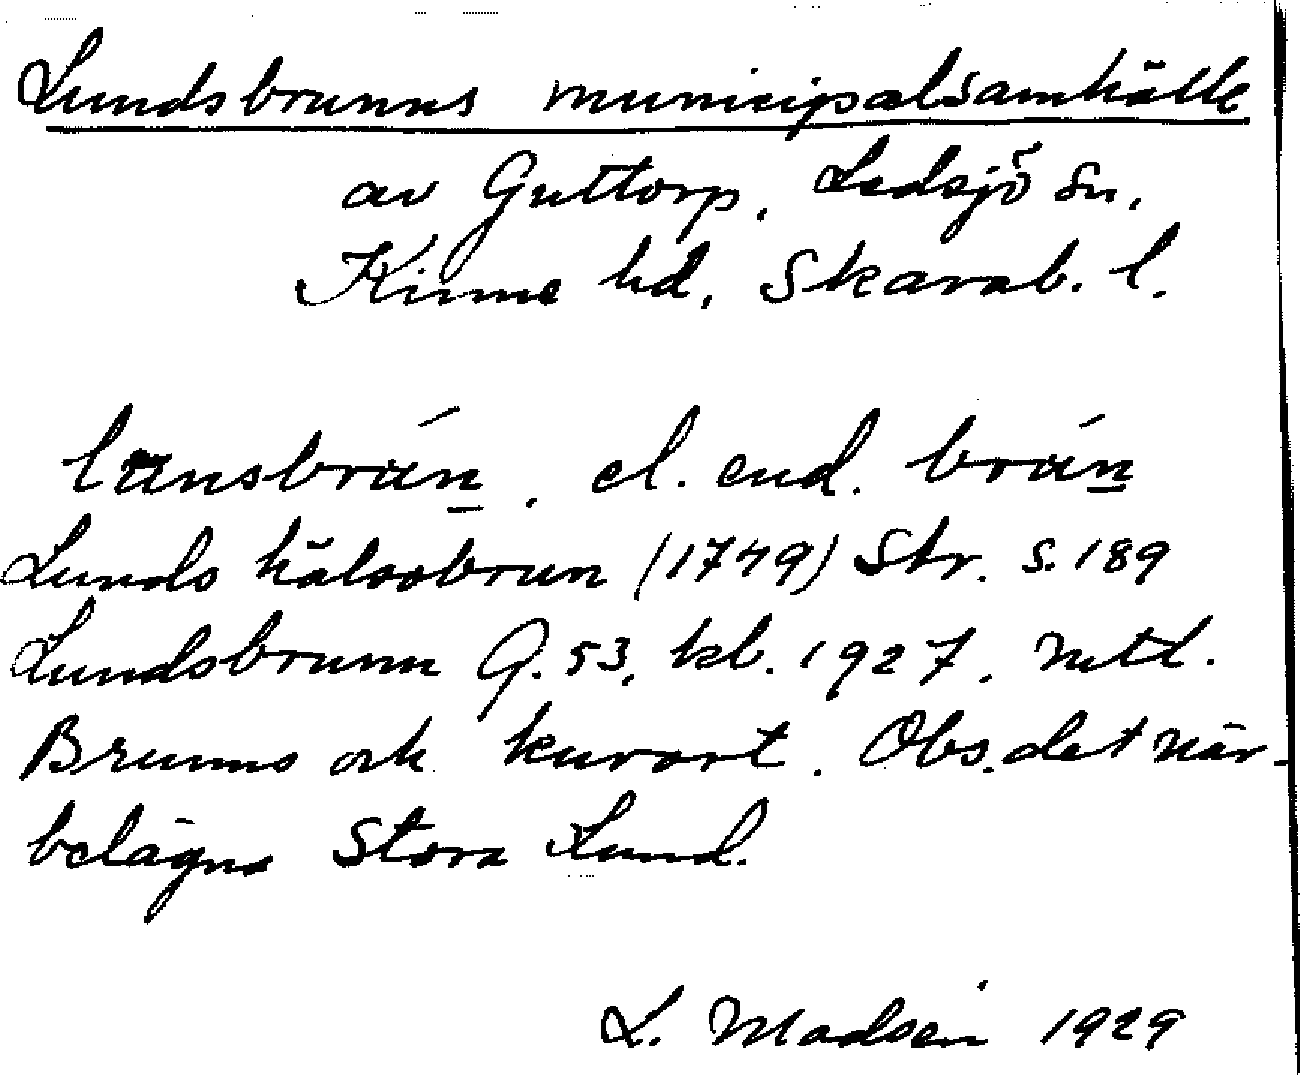 Lundsbrunns municipalsamhälle
av Guttorp, Ledsjö sn,
Kinne hd, Skarab. l.
lunsbrún, el. end. brún
Lunds hälsobrun (1749) Str. s. 189
Lundsbrunn G. 53, kb. 1927.
Brunns och kurort. Obs. det när-
belägna Stora Lund.
L. Madsén 1929